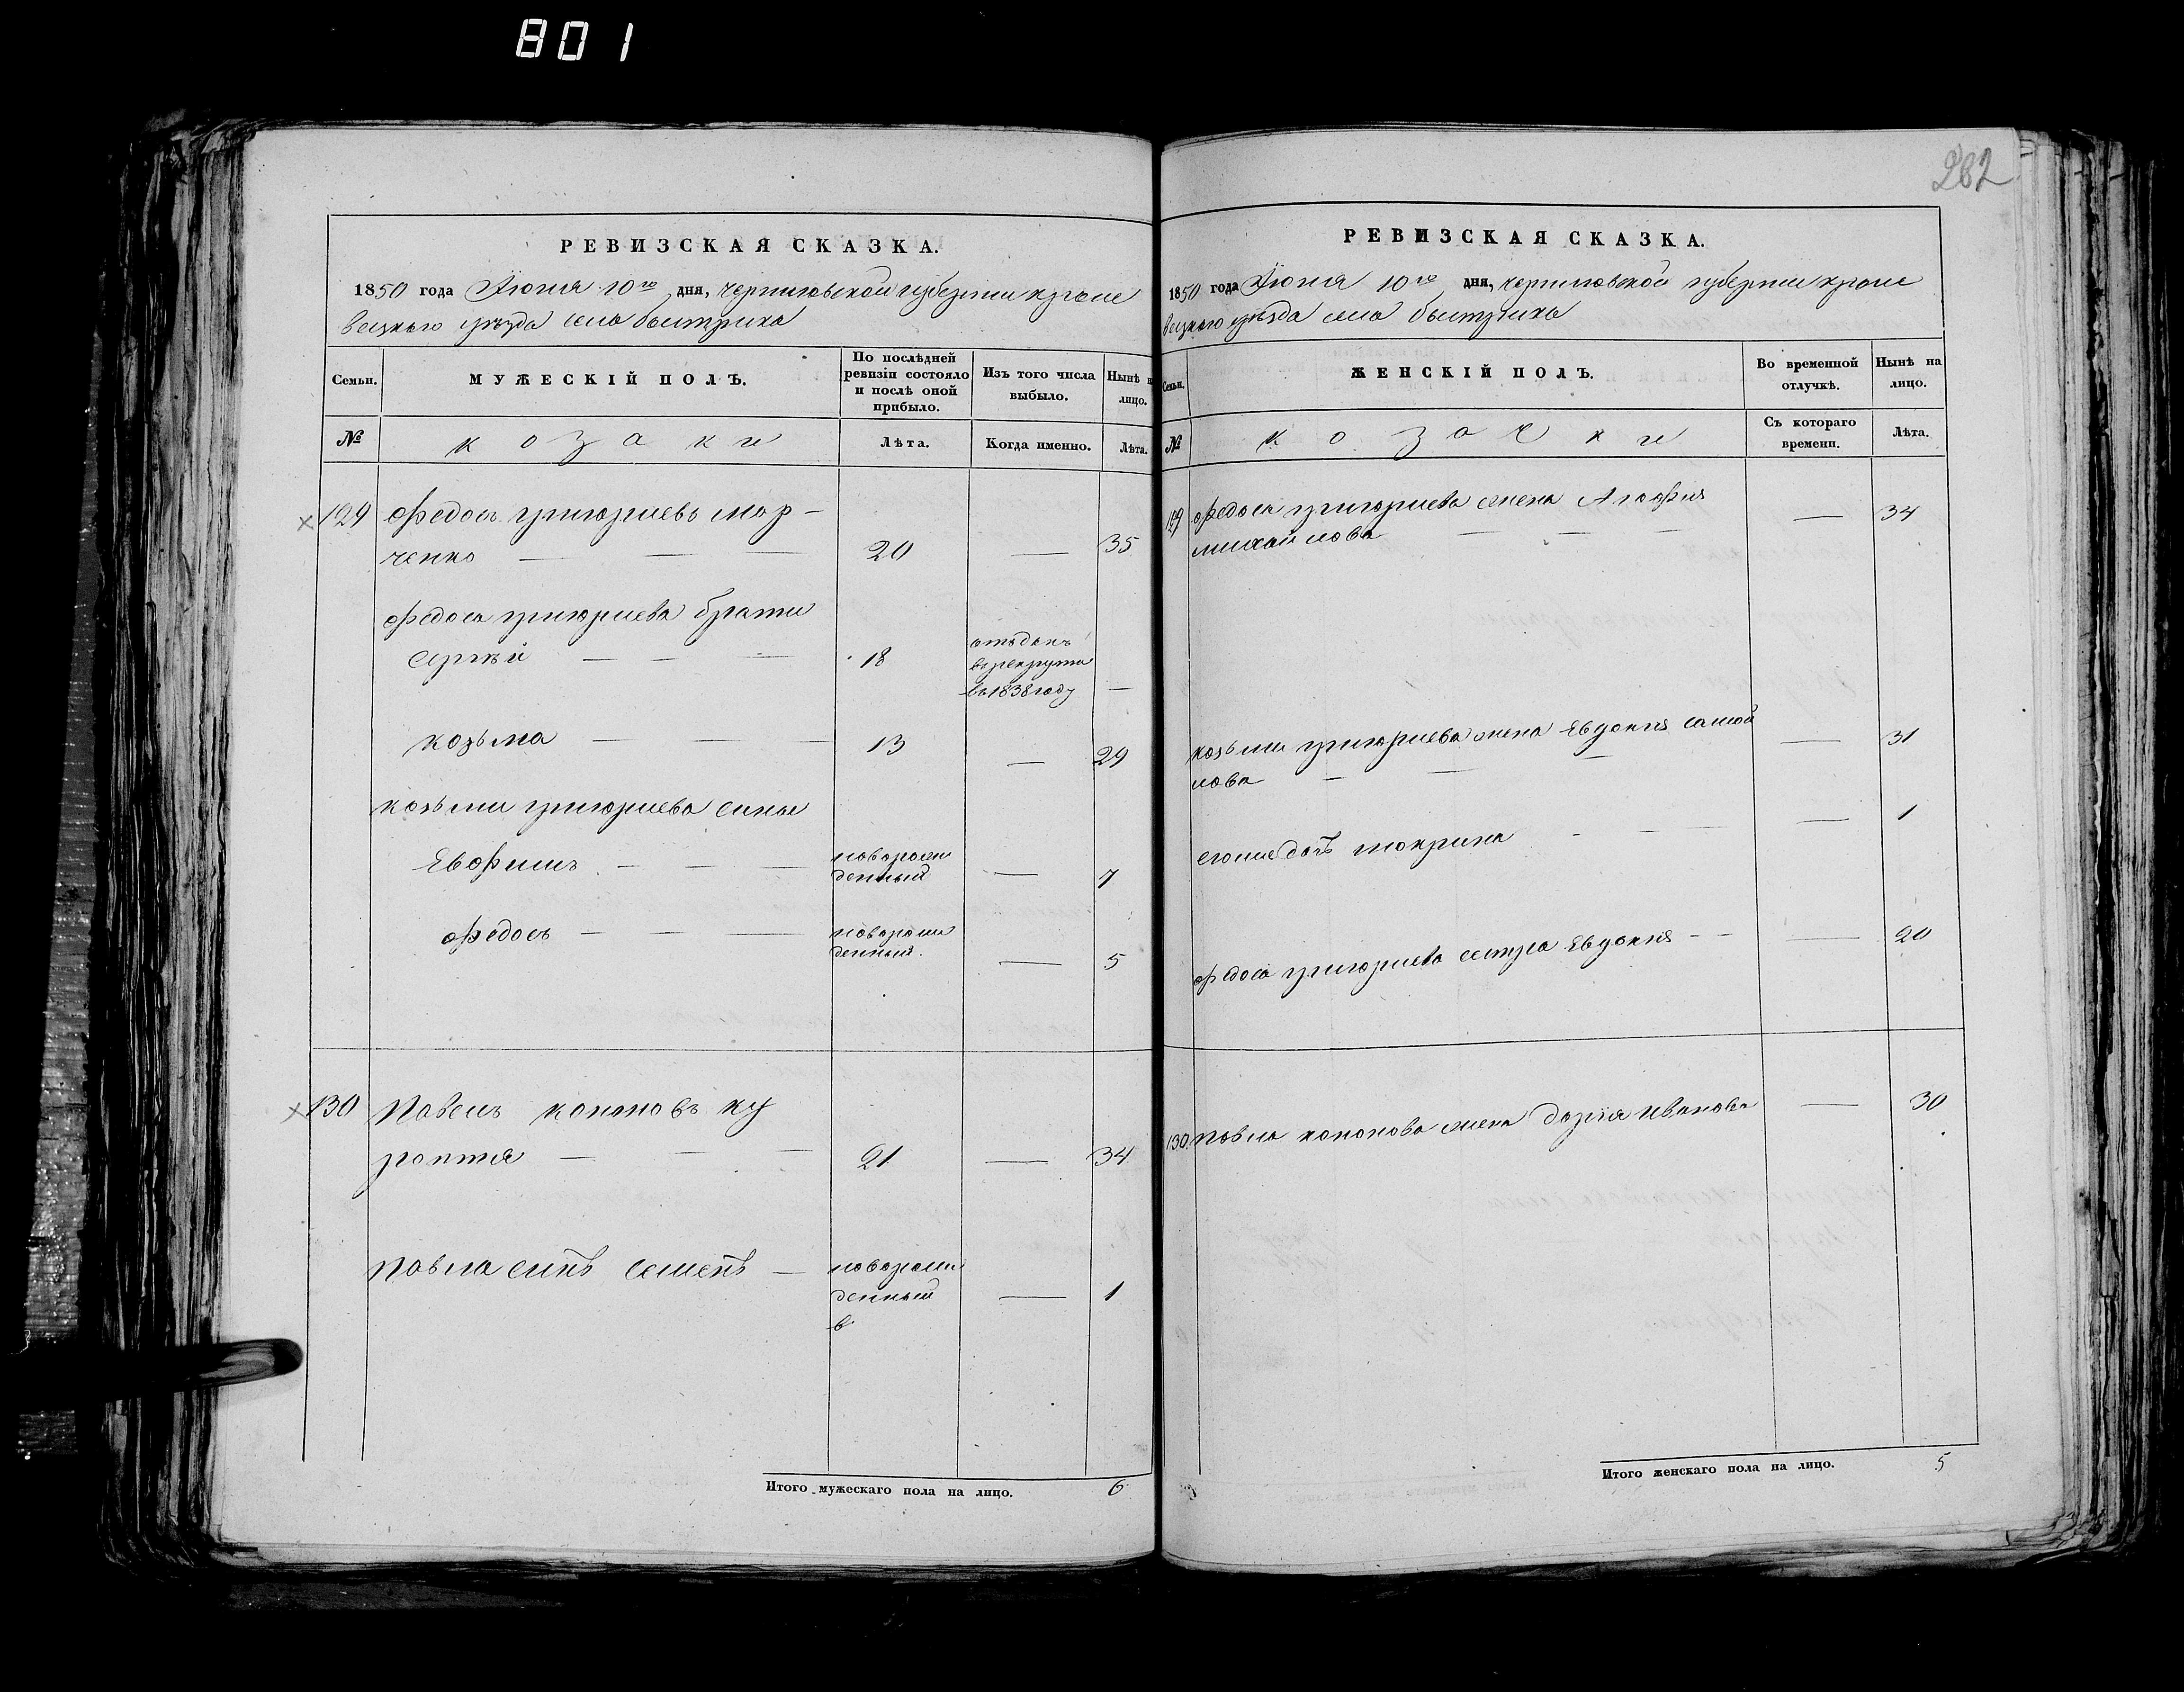 801
282
РЕВИЗСКАЯ СКАЗКА.
1850 года Июня 10го дня, черниговской губернии кроле
вецкого уезда села быстрика
Семьи.
МУЖЕСКІЙ ПОЛЪ.
По послѣдней ревизіи состояло и послѣ оной прибыло.
Изъ того числа выбыло.
Нынѣ н лицо.
№
козаки
Лѣта.
Когда именно.
Лѣта.
129 Федосъ григориевъ мар-
ченко — — — 20 — 35
Федоса григориева брати
Сергѣй — — — 18
отъданъ
врекруты
въ1838году —
козьма — — — 13 — 29
козьми григориева сины
Евфимъ — — —
новорож
денный — 7
Федосъ — — —
новорож
денный — 5
130 Павелъ кононовъ ку
рантя — — — 21 — 34
Павла синъ Семенъ —
новорож
денный — 1
в
Итого мужескаго пола на лицо. 6
РЕВИЗСКАЯ СКАЗКА.
1850 года Июня 10го дня, черниговской губернии кроле
вецкого уезда села быстрика
Семьи.
ЖЕНСКІЙ ПОЛЪ.
Во временной отлучкѣ.
Нынѣ на лицо.
№
козачки
Съ котораго времени.
Лѣта.
129 Федоса григориева жена Агафия — 34
михайлова — — —
козьми григориева жена Евдокия самой — 31
лова — — —
егоже дочь мокрина — — — — 1
Федоса григориева сестра Евдокия — — — 20
130 Павла кононова жена дария иванова — 30
Итого женскаго пола на лицо. 5